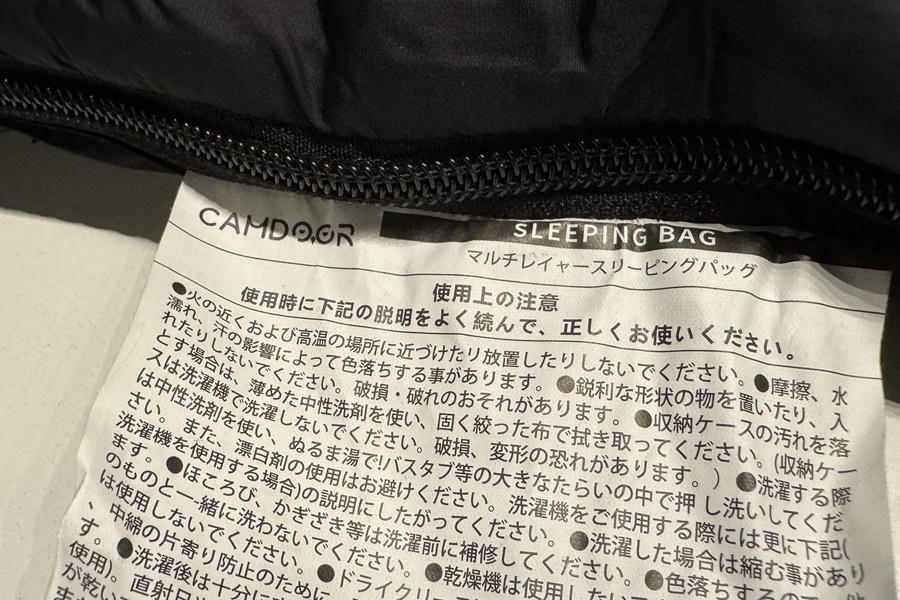 CAMDOOR
SLEEPING BAG
マルチレイヤースリーピングバッグ
使用上の注意
使用時に下記の脱明をよく続んで、正しくお使いください。
●火の近くおよび高温の場所に近づけたり放置したりしないでください。●摩擦、水
濡れ、汗の影響によって色落ちする事があります。●鋭利な形状の物を置いたり、入
れたりしないでください。破損・破れのおそれがあります。●収納ケースの汚れを落
とす場合は、薄めた中性洗剤を使い、固く絞った布で拭き取ってください。(収納ケー
スは洗濯機で洗濯しないでください。破損、変形の恐れがあります。)●洗濯する際
は中性洗剤を使い、ぬるま湯で!バスタブ等の大きなたらいの中で押し洗いしてくだ
さい。また、漂白剤の使用はお避けください。洗濯機をご使用する際には更に下記(
洗濯機を使用する場合)の説明にしたがってください。●洗濯した場合は縮む事があり
ます。●ほころび、かぎざき等は洗濯前に補修してください。●色落ちするので
のものと一緒に洗わないでください。●乾燥機は使用しないで
は使用しないでください。●ドライクリー
、中綿の片寄り防止のために
す。●洗濯後は十分に
使用)。直射日
が乾い